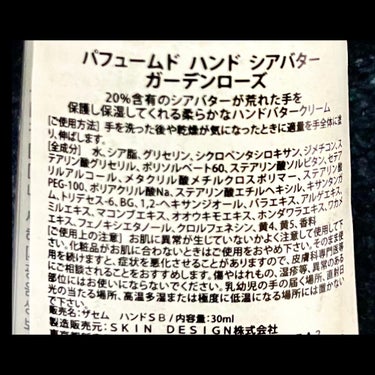 パフュームド ハンド シアバター
ガーデンローズ
20%含有のシアバターが荒れた手を
保護し保湿してくれる柔らかなハンドバタークリーム
[ご使用方法] 手を洗った後や乾燥が気になったときに適量を手全体に塗
り、伸ばします。
[全成分] 水、シア脂、グリセリン、シクロペンタシロキサン、ジメチコン、ス
テアリン酸グリセリル、ポリソルベート60、ステアリン酸ソルビタン、セテア
リルアルコール、メタクリル酸メチルクロスポリマー、ステアリン酸
PEG-100、ポリアクリル酸Na、ステアリン酸エチルヘキシル、キサンタンガ
ム、トリデセス-6、BG、1,2-ヘキサンジオール、バラエキス、アルゲエキス、
ミルエキス、マコンブエキス、オオウキモエキス、ホンダワラエキス、ワカメ
エキス、フェノキシエタノール、クロルフェネシン、黄4、黄5、香料
[ご使用上の注意] お肌に異常が生じていないかよく注意して使用して下
さい。化粧品がお肌に合わないときはご使用をおやめ下さい。そのまま使
用を続けますと、症状を悪化させることがありますので、皮膚科専門医等
にご相談されることをおすすめします。傷やはれもの、湿疹等、異常のある
部位にはお使いにならないでください。乳幼児の手の届く場所、直射日
光の当たる場所、高温多湿または極度に低温になる場所には置かない
で下さい。
販売名：ザセム ハンドSB/内容量：30ml
製造販売元：SKIN DESIGN株式会社